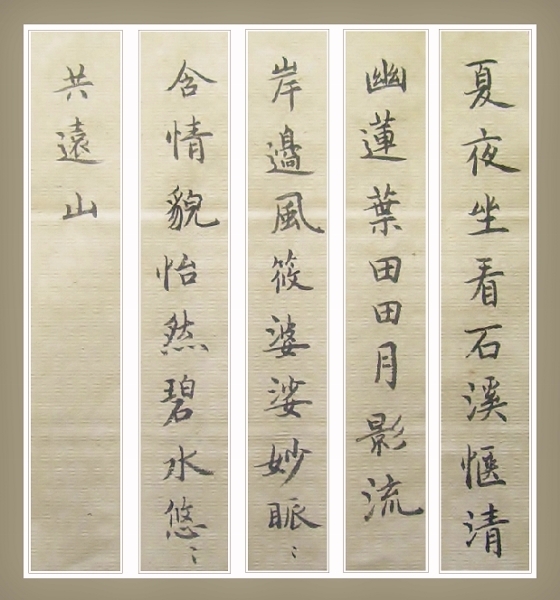 夏夜坐看石溪愜清
幽蓮葉田田月影流
岸邊風筱婆娑妙眽〻
含情貌怡然碧水悠〻
共遠山